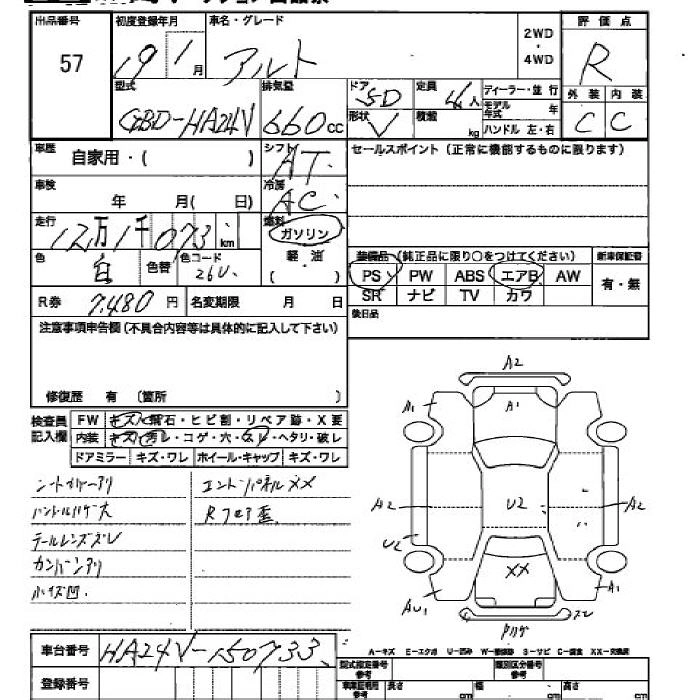 出品番号 初度登録年月 車名・グレード 2WD・4WD 評価点
57 19年1月 アルト R
型式 排気量 ドア 5D 定員 4人 ディーラー・並行 外装 内装
GBD-HA24V 660cc 形状 V 積載 kg モデル年式 年 ハンドル 左・右 C C
車歴 自家用・( ) シフト AT セールスポイント（正常に機能するものに限ります）
車検 年 月( 日) 冷房 AC
走行 12万1千073km 燃料 ガソリン
色 白 色替 色コード 26U 軽油 ( )
装備品（純正品に限り○をつけてください） 新車保証書
PS PW ABS エアB AW 有・無
SR ナビ TV カワ
R券 7,480円 名変期限 月 日 後日品
注意事項申告欄（不具合内容等は具体的に記入して下さい）
修復歴 有 （箇所 ）
検査員記入欄 FW キズ・飛石・ヒビ割・リペア跡・X要
内装 キズ・汚レ・コゲ・穴・スレ・ヘタリ・破レ
ドアミラー キズ・ワレ ホイール・キャップ キズ・ワレ
エンドパネルXX
ハンドルハゲ大
テールレンズズレ
カンバンアリ
小キズ凹.
A2
A1 A1
A2 U2 A2
U2
XX
AU1 A1
車台番号 HA24V-150733
登録番号
A-キズ E-エクボ U-凹み W-補修跡 S-サビ C-腐食 XX-交換済
型式指定番号 参考 類別区分番号 参考
車庫証明用 参考 長さ cm 幅 cm 高さ cm